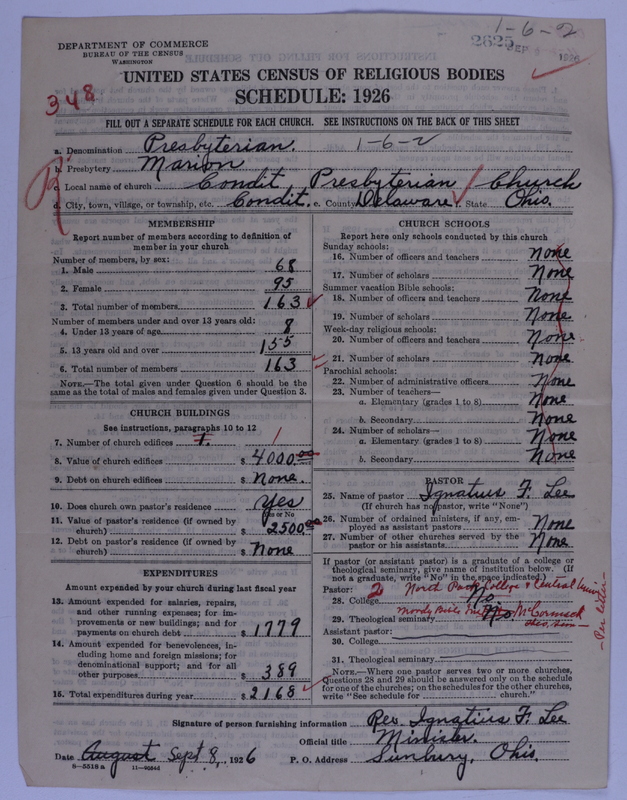 1-6-2
DEPARTMENT OF COMMERCE
BUREAU OF THE CENSUS
WASHINGTON
2625 SEP 1926
UNITED STATES CENSUS OF RELIGIOUS BODIES
348
SCHEDULE: 1926
FILL OUT A SEPARATE SCHEDULE FOR EACH CHURCH. SEE INSTRUCTIONS ON THE BACK OF THIS SHEET
a. Denomination Presbyterian. 1-6-2
b. Presbytery Marion
c. Local name of church Condit Presbyterian Church
d. City, town, village, or township, etc. Condit. e. County Delaware f. State Ohio.
MEMBERSHIP
Report number of members according to definition of member in your church
Number of members, by sex:
1. Male 68
2. Female 95
3. Total number of members 163
Number of members under and over 13 years old:
4. Under 13 years of age 8
5. 13 years old and over 155
6. Total number of members 163
NOTE.—The total given under Question 6 should be the same as the total of males and females given under Question 3.
CHURCH BUILDINGS
See instructions, paragraphs 10 to 12
7. Number of church edifices 1. 1
8. Value of church edifices $ 4000.00
9. Debt on church edifices $ None.
10. Does church own pastor's residence Yes
Yes or No
11. Value of pastor's residence (if owned by church) $ 2500.00
12. Debt on pastor's residence (if owned by church) $ None
EXPENDITURES
Amount expended by your church during last fiscal year
13. Amount expended for salaries, repairs, and other running expenses; for improvements or new building; and for payments on church debt $ 1779
14. Amount expended for benevolences, including home and foreign missions; for denominational support; and for all other purposes $ 389
15. Total expenditures during year $ 2168
CHURCH SCHOOLS
Report here only schools conducted by this church
Sunday schools:
16. Number of officers and teachers None
17. Number of scholars None
Summer vacation Bible schools:
18. Number of officers and teachers None
19. Number of scholars None
Week-day religious schools:
20. Number of officers and teachers None
21. Number of scholars None
Parochial schools:
22. Number of administrative officers None
23. Number of teachers—
a. Elementary (grades 1 to 8) None
b. Secondary None
24. Number of scholars—
a. Elementary (grades 1 to 8) None
b. Secondary None
PASTOR
25. Name of pastor Ignatius F. Lee
(If church has no pastor, write "None")
26. Number of ordained ministers, if any, employed as assistant pastors None
27. Number of other churches served by the pastor or his assistants None
If pastor (or assistant pastor) is a graduate of a college or theological seminary, give name of institution below. (If not a graduate, write "No" in the space indicated.)
Pastor: 2 North Park College & Central Univ
28. College No.
29. Theological seminary No. McCormack
Assistant pastor:
30. College
31. Theological seminary
- Per letter -
NOTE.—Where one pastor serves two or more churches, Questions 28 and 29 should be answered only on the schedule for one of the churches; on the schedules for the other churches, write "See schedule for church."
Signature of person furnishing information Rev. Ignatius F. Lee
Official title Minister.
Date August Sept 8, 1926 P. O. Address Sunbury, Ohio.
8—5518 a